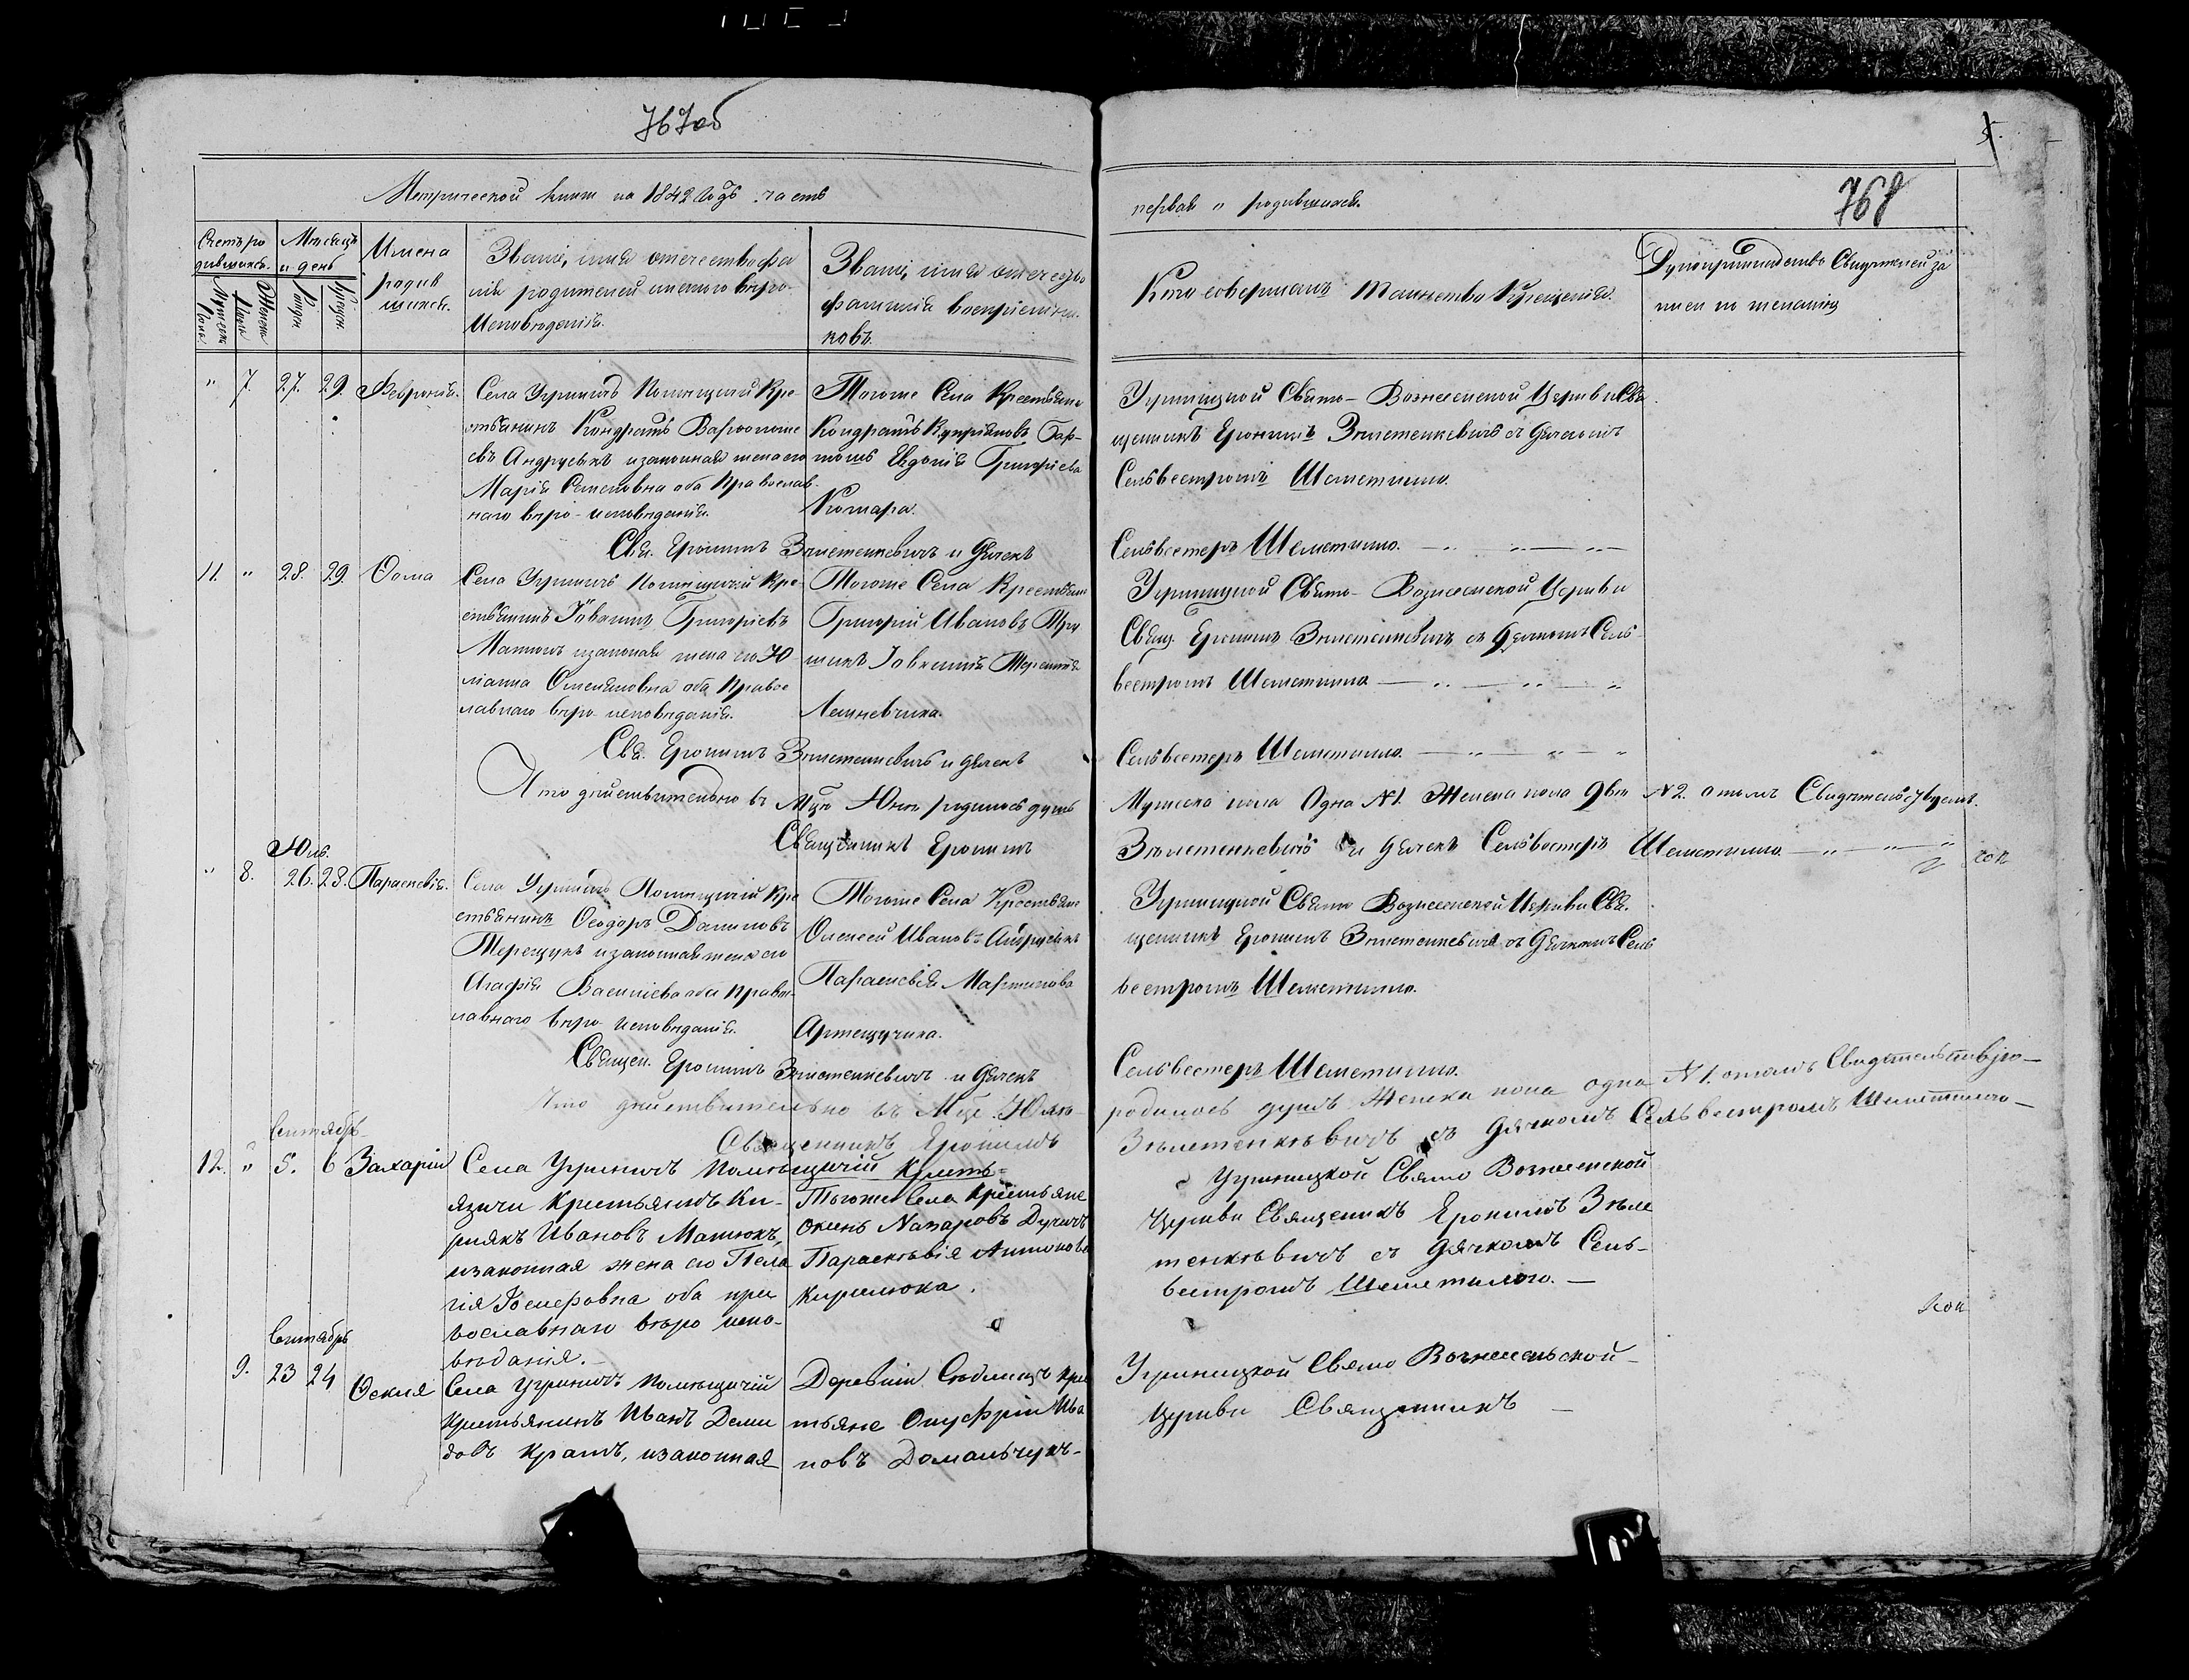 767об
Метрической книги на 1842 Годъ часть
первая „ родившихся.
768
5.
Счетъ родившихся.
Мужеска пола
Женска
Мѣсяцъ и день
Рожден.
Крещен.
Имена родившихся.
Званіе, имя отечество фамилія родителей и какого вѣроисповѣданія.
Званіе, имя отечество фамилія воспріемниковъ.
Кто совершалъ таинство Крещенія.
Рукоприкладство Свидѣтелей записи по желанію
„ 7. 27. 29. Февронія.
Села Угриничъ Помѣщичій Кре-
стьянинъ Кондратъ Варфоломе
евъ Андрусикъ изаконная жена его
Марія Семеновна оба Православ-
наго вѣро-исповѣданія.
Тогоже Села Крестьяне
Кондратъ Купріяновъ
Евдокія Григоріева
Комара.
Угриницкой Свято-Вознесенской Церкви Свя
щенникъ Еронимъ Зѣлетенкевичъ съ Дячкомъ
Сельвестромъ Шелетилло.
Свя. Еронимъ Зѣлетенкевичъ и Дячекъ
Сельвестеръ Шелетилло.
11. „ 28. 29. Ѳома
Села Угриничъ Помѣщичій Кре-
стьянинъ Іоакимъ Григоріевъ
Матюхъ изаконая жена его Ю
ліанна Омеляновна оба Правос
лавнаго вѣро-исповѣданія.
Тогоже Села Крестьяне
Григорій Ивановъ
Лешневчика.
Угриницкой Свято-Вознесенской Церкви
Свящ. Еронимъ Зѣлетенкевичъ съ Дячкомъ Сель-
вестромъ Шелетилло
Свя. Еронимъ Зѣлетенкевичъ и Дячекъ
Сельвестеръ Шелетилло.
Что дѣйствительно въ Мцѣ Юнѣ родилось душъ
Мужеска пола Одна №1. Женска пола двѣ №2. отомъ Свидѣтельствуемъ.
Священникъ Еронимъ
Зѣлетенкевичъ и Дячекъ Сельвестеръ Шелетилло
Юль.
„ 8. 26. 28. Параскевія.
Села Угриничъ Помѣщичій Кре
стьянинъ Ѳеодоръ Даниловъ
Терещукъ изаконная жена его
Агафія Василіева оба Правос-
лавнаго вѣро-исповѣданія.
Тогоже Села Крестьяне
Олексей Ивановъ Андрусикъ
Параскевія Мартинова
Артещучика.
Угриницкой Свято Вознесенской Церкви Свя.
щенникъ Еронимъ Зѣлетенкевичъ съ Дячкомъ Сель
вестромъ Шелетилло.
Священ. Еронимъ Зѣлетенкевичъ и Дячекъ
Сельвестеръ Шелетилло.
Что дѣйствительно въ Мцѣ Юлѣ
родилось душъ Женска пола одна №1. отомъ Свидѣтельствую
Священникъ Еронимъ
Зѣлетенкѣвичъ съ Дячкомъ Сельвестромъ Шелетилло
Сентябрь
12. „ 5. 6 Захарій
Села Угриничъ Помѣщичій Кресть-
янинъ Ки-
ріякъ Ивановъ Матюхъ,
изаконная жена его Пела
гія Іосифовна оба пра
вославнаго вѣро испо-
вѣданія.
Тогоже Села Крестьяне
Назаровъ
Параскѣвія Антонова
Кирилюка.
Угриницкой Свято Вознесенской
Церкви Священникъ Еронимъ Зѣле
тенкѣвичъ съ Дячкомъ Сель-
вестромъ Шелетилло.
Сентябрь
9. 23 24 Ѳекля
Села Угриничъ Помѣщичій
Крестьянинъ Иванъ Деми
довъ изаконная
Деревни Крес
тьяне Онуфрій Ива
новъ Доманьчукъ
Угриницкой Свято Вознесенской
Церкви Священникъ